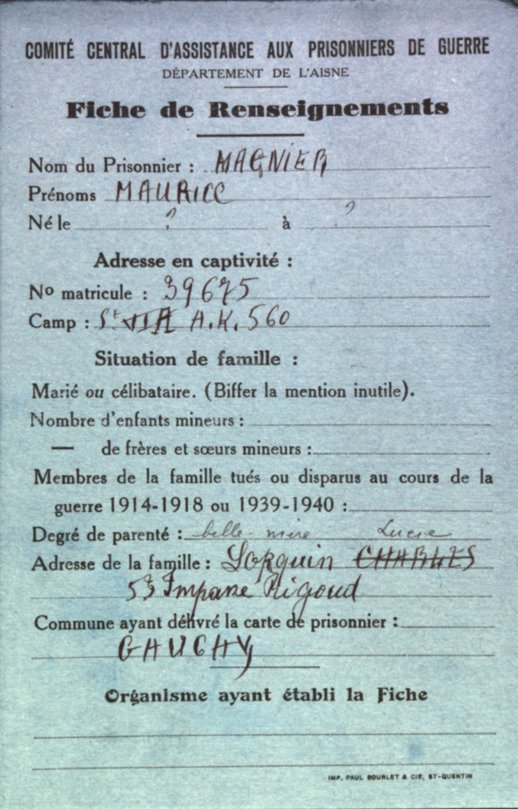 COMITÉ CENTRAL D'ASSISTANCE AUX PRISONNIERS DE GUERRE
DÉPARTEMENT DE L'AISNE
Fiche de Renseignements
Nom du Prisonnier : MAGNIER
Prénoms MAURICE
Né le ? à ?
Adresse en captivité :
No matricule : 39675
Camp : St VIA A.K. 560
Situation de famille :
Marié ou célibataire. (Biffer la mention inutile).
Nombre d'enfants mineurs :
— de frères et sœurs mineurs :
Membres de la famille tués ou disparus au cours de la
guerre 1914-1918 ou 1939-1940 :
Degré de parenté : belle mère Lucie
Adresse de la famille : Lorquin CHARLES
53 Impasse Rigoud
Commune ayant délivré la carte de prisonnier :
GAUCHY
Organisme ayant établi la Fiche
IMP. PAUL BOURLET & CIE, ST-QUENTIN